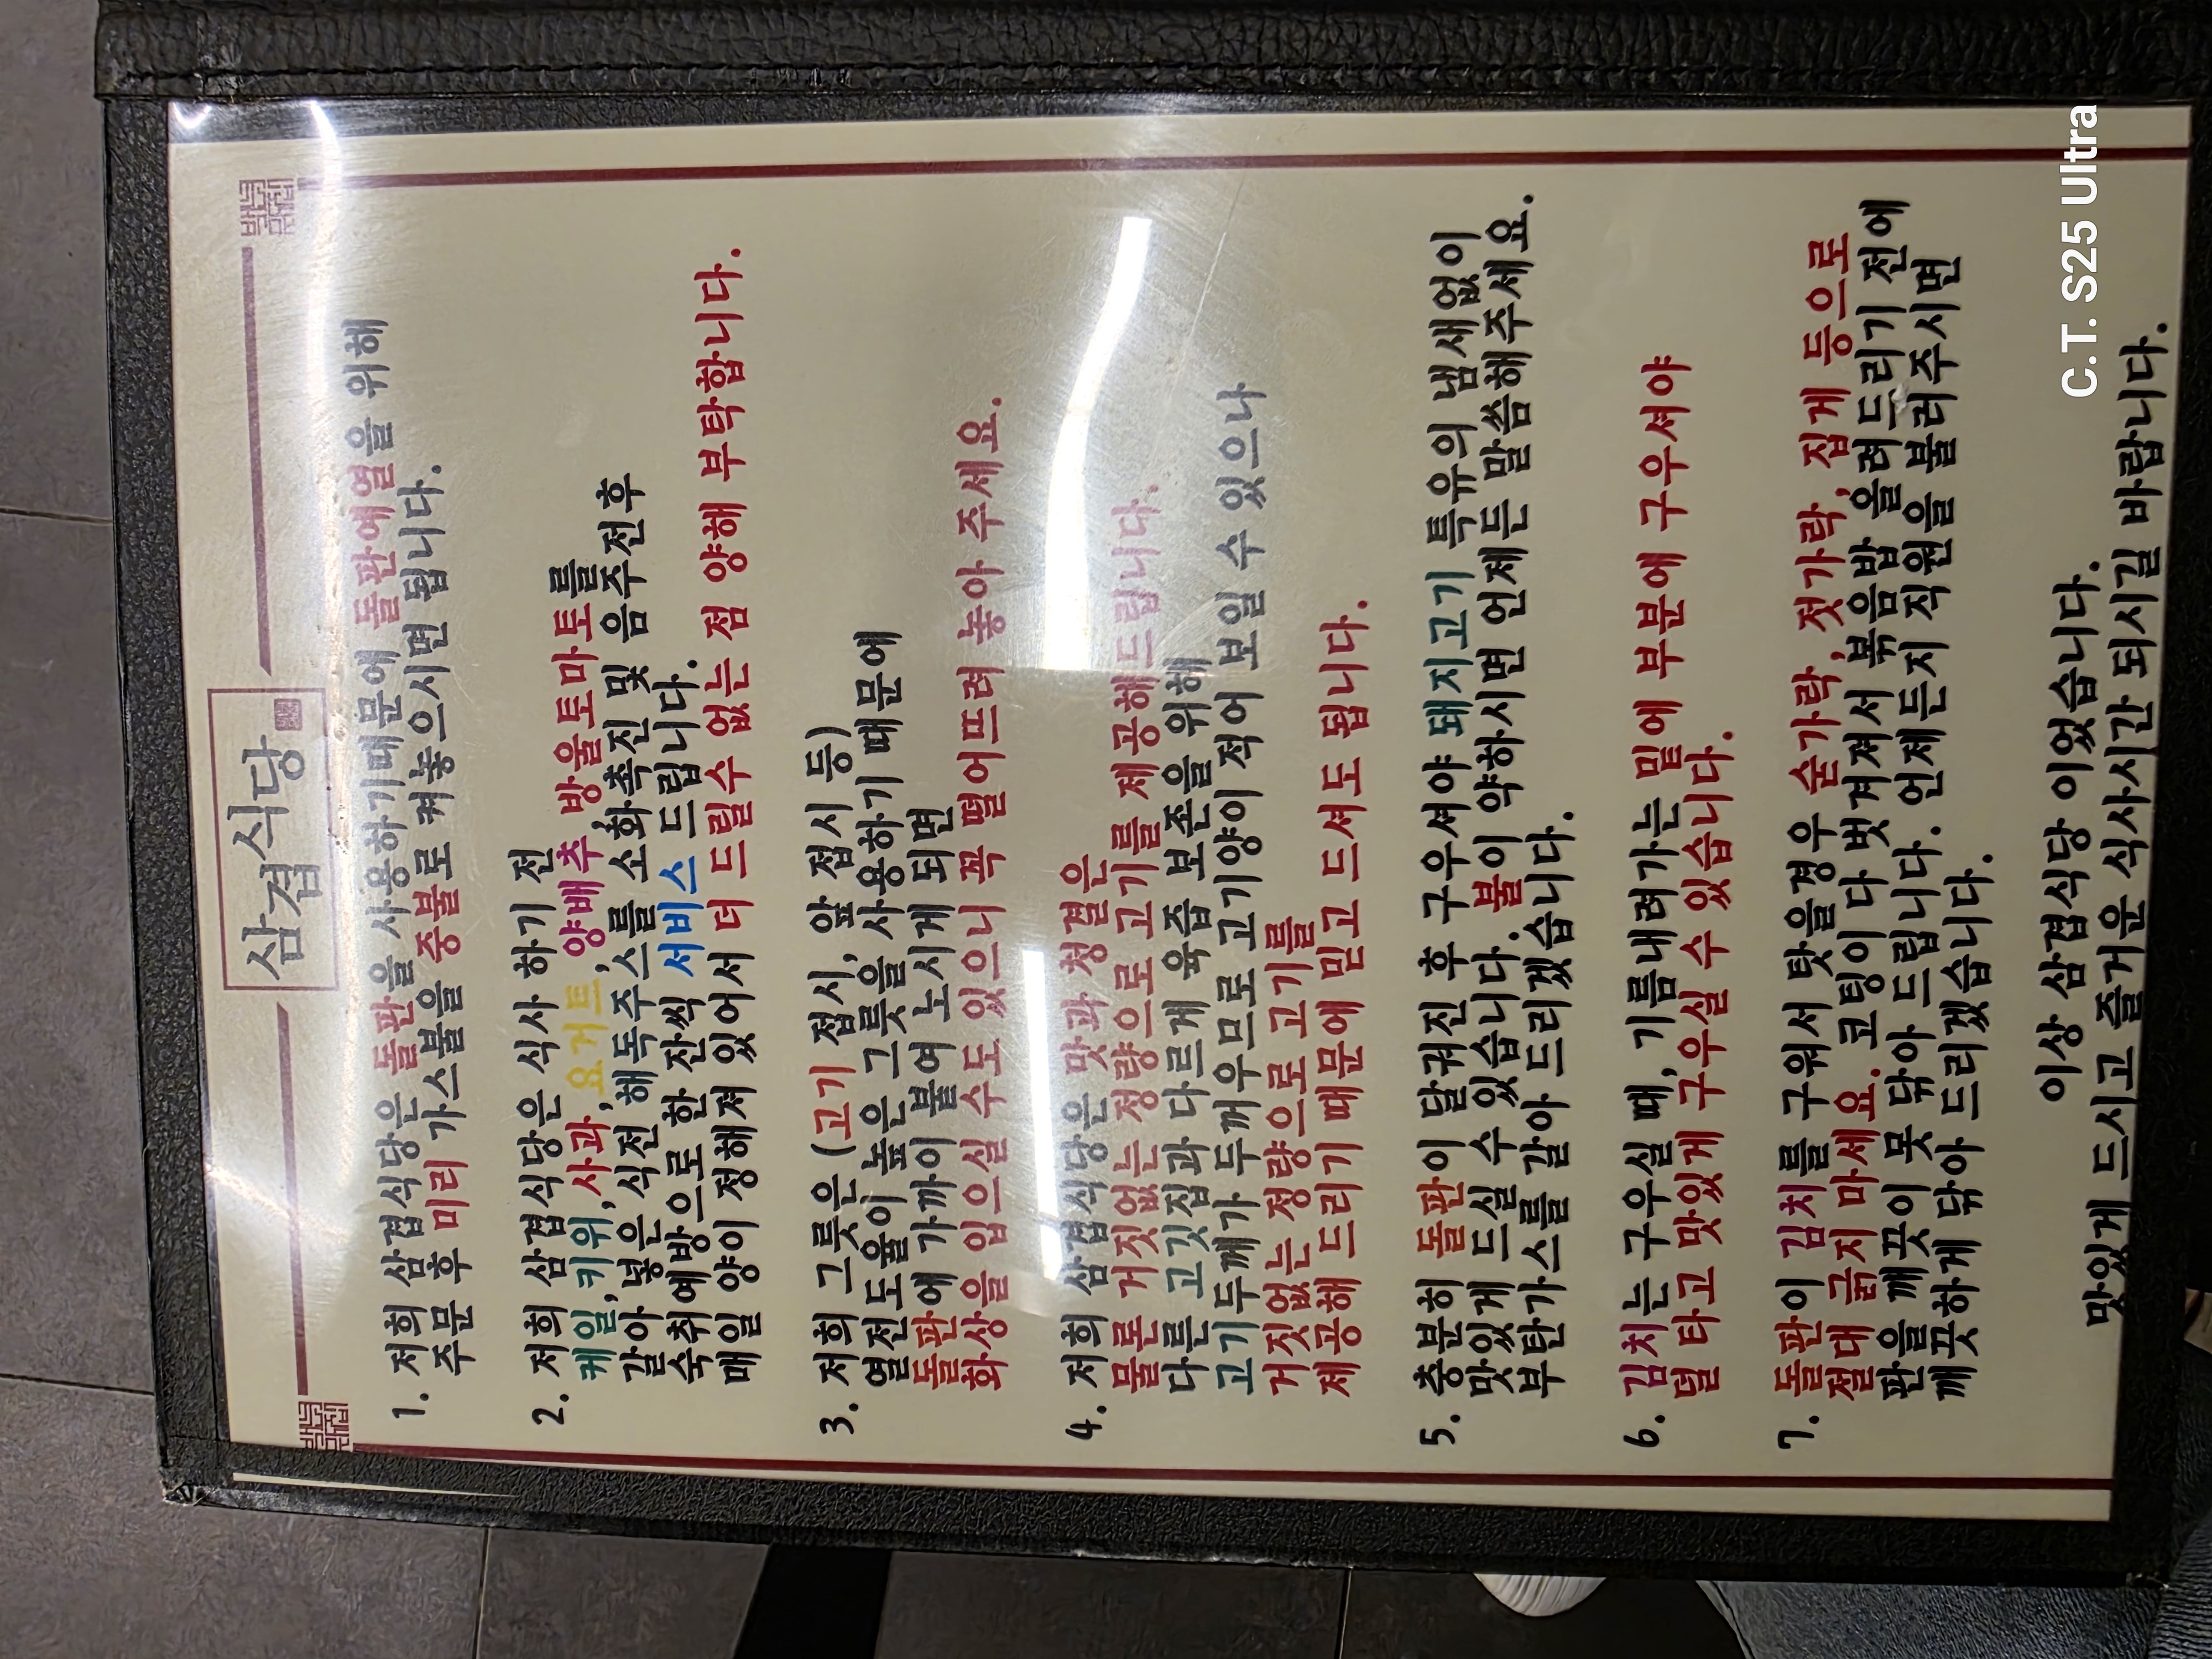 삼겹식당
1. 저희 삼겹식당은 돌판을 사용하기때문에 돌판예열을 위해
주문 후 미리 가스불을 중불로 켜놓으시면 됩니다.
2. 저희 삼겹식당은 식사 하기 전
케일,키위,사과,요거트,양배추 방울토마토를
갈아 넣은 식전 해독주스를 소화촉진 및 음주전후
숙취예방으로 한 잔씩 서비스 드립니다.
매일 양이 정해져 있어서 더 드릴수 없는 점 양해 부탁합니다.
3. 저희 그릇은 (고기 접시, 앞 접시 등)
열전도율이 높은 그릇을 사용하기 때문에
돌판에 가까이 붙여 노시게 되면
화상을 입으실 수도 있으니 꼭 떨어뜨려 놓아 주세요.
4. 저희 삼겹식당은 맛과청결은
물론 거짓없는 정량으로 고기를 제공해드립니다.
다른 고깃집과 다르게 육즙 보존을 위해
고기두께가 두꺼우므로 고기양이 적어 보일 수 있으나
거짓없는 정량으로 고기를
제공해 드리기 때문에 믿고 드셔도 됩니다.
5. 충분히 돌판이 달궈진 후 구우셔야 돼지고기 특유의 냄새없이
맛있게 드실 수 있습니다.불이 약하시면 언제든 말씀해주세요.
부탄가스를 갈아 드리겠습니다.
6. 김치는 구우실 때, 기름내려가는 밑에 부분에 구우셔야
덜 타고 맛있게 구우실 수 있습니다.
7. 돌판이 김치를 구워서 탓을경우 숟가락,젓가락,집게 등으로
절대 긁지 마세요. 코팅이 다 벗겨져서 볶음밥 올려드리기 전에
판을 깨끗이 못 닦아 드립니다. 언제든지 직원을 불러주시면
깨끗하게 닦아 드리겠습니다.
이상 삼겹식당 이었습니다.
맛있게 드시고 즐거운 식사시간 되시길 바랍니다.
C.T. S25 Ultra